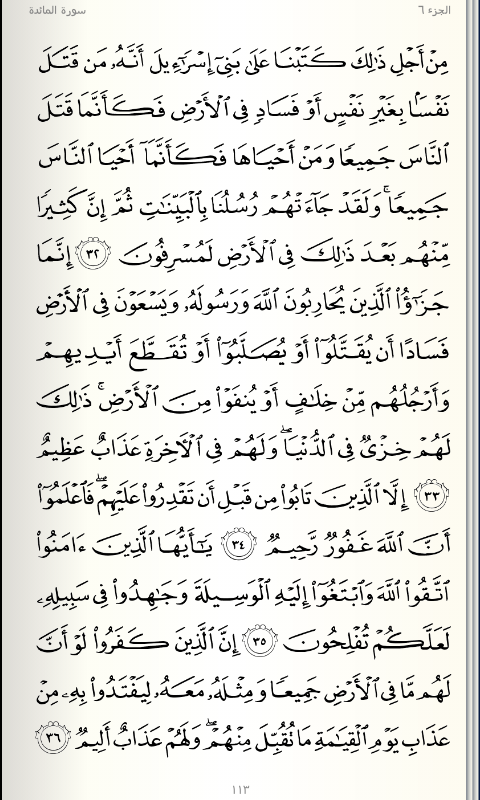 الجزء ٦
سورة المائدة
مِنْ أَجْلِ ذَٰلِكَ كَتَبْنَا عَلَىٰ بَنِىٓ إِسْرَٰٓءِيلَ أَنَّهُۥ مَن قَتَلَ
نَفْسًۢا بِغَيْرِ نَفْسٍ أَوْ فَسَادٍ فِى ٱلْأَرْضِ فَكَأَنَّمَا قَتَلَ
ٱلنَّاسَ جَمِيعًا وَمَنْ أَحْيَاهَا فَكَأَنَّمَآ أَحْيَا ٱلنَّاسَ
جَمِيعًا ۚ وَلَقَدْ جَآءَتْهُمْ رُسُلُنَا بِٱلْبَيِّنَٰتِ ثُمَّ إِنَّ كَثِيرًا
مِّنْهُم بَعْدَ ذَٰلِكَ فِى ٱلْأَرْضِ لَمُسْرِفُونَ ٣٢ إِنَّمَا
جَزَٰٓؤُا۟ ٱلَّذِينَ يُحَارِبُونَ ٱللَّهَ وَرَسُولَهُۥ وَيَسْعَوْنَ فِى ٱلْأَرْضِ
فَسَادًا أَن يُقَتَّلُوٓا۟ أَوْ يُصَلَّبُوٓا۟ أَوْ تُقَطَّعَ أَيْدِيهِمْ
وَأَرْجُلُهُم مِّنْ خِلَٰفٍ أَوْ يُنفَوْا۟ مِنَ ٱلْأَرْضِ ۚ ذَٰلِكَ
لَهُمْ خِزْىٌ فِى ٱلدُّنْيَا ۖ وَلَهُمْ فِى ٱلْءَاخِرَةِ عَذَابٌ عَظِيمٌ
٣٣ إِلَّا ٱلَّذِينَ تَابُوا۟ مِن قَبْلِ أَن تَقْدِرُوا۟ عَلَيْهِمْ ۖ فَٱعْلَمُوٓا۟
أَنَّ ٱللَّهَ غَفُورٌ رَّحِيمٌ ٣٤ يَٰٓأَيُّهَا ٱلَّذِينَ ءَامَنُوا۟
ٱتَّقُوا۟ ٱللَّهَ وَٱبْتَغُوٓا۟ إِلَيْهِ ٱلْوَسِيلَةَ وَجَٰهِدُوا۟ فِى سَبِيلِهِۦ
لَعَلَّكُمْ تُفْلِحُونَ ٣٥ إِنَّ ٱلَّذِينَ كَفَرُوا۟ لَوْ أَنَّ
لَهُم مَّا فِى ٱلْأَرْضِ جَمِيعًا وَمِثْلَهُۥ مَعَهُۥ لِيَفْتَدُوا۟ بِهِۦ مِنْ
عَذَابِ يَوْمِ ٱلْقِيَٰمَةِ مَا تُقُبِّلَ مِنْهُمْ ۖ وَلَهُمْ عَذَابٌ أَلِيمٌ ٣٦
١١٣